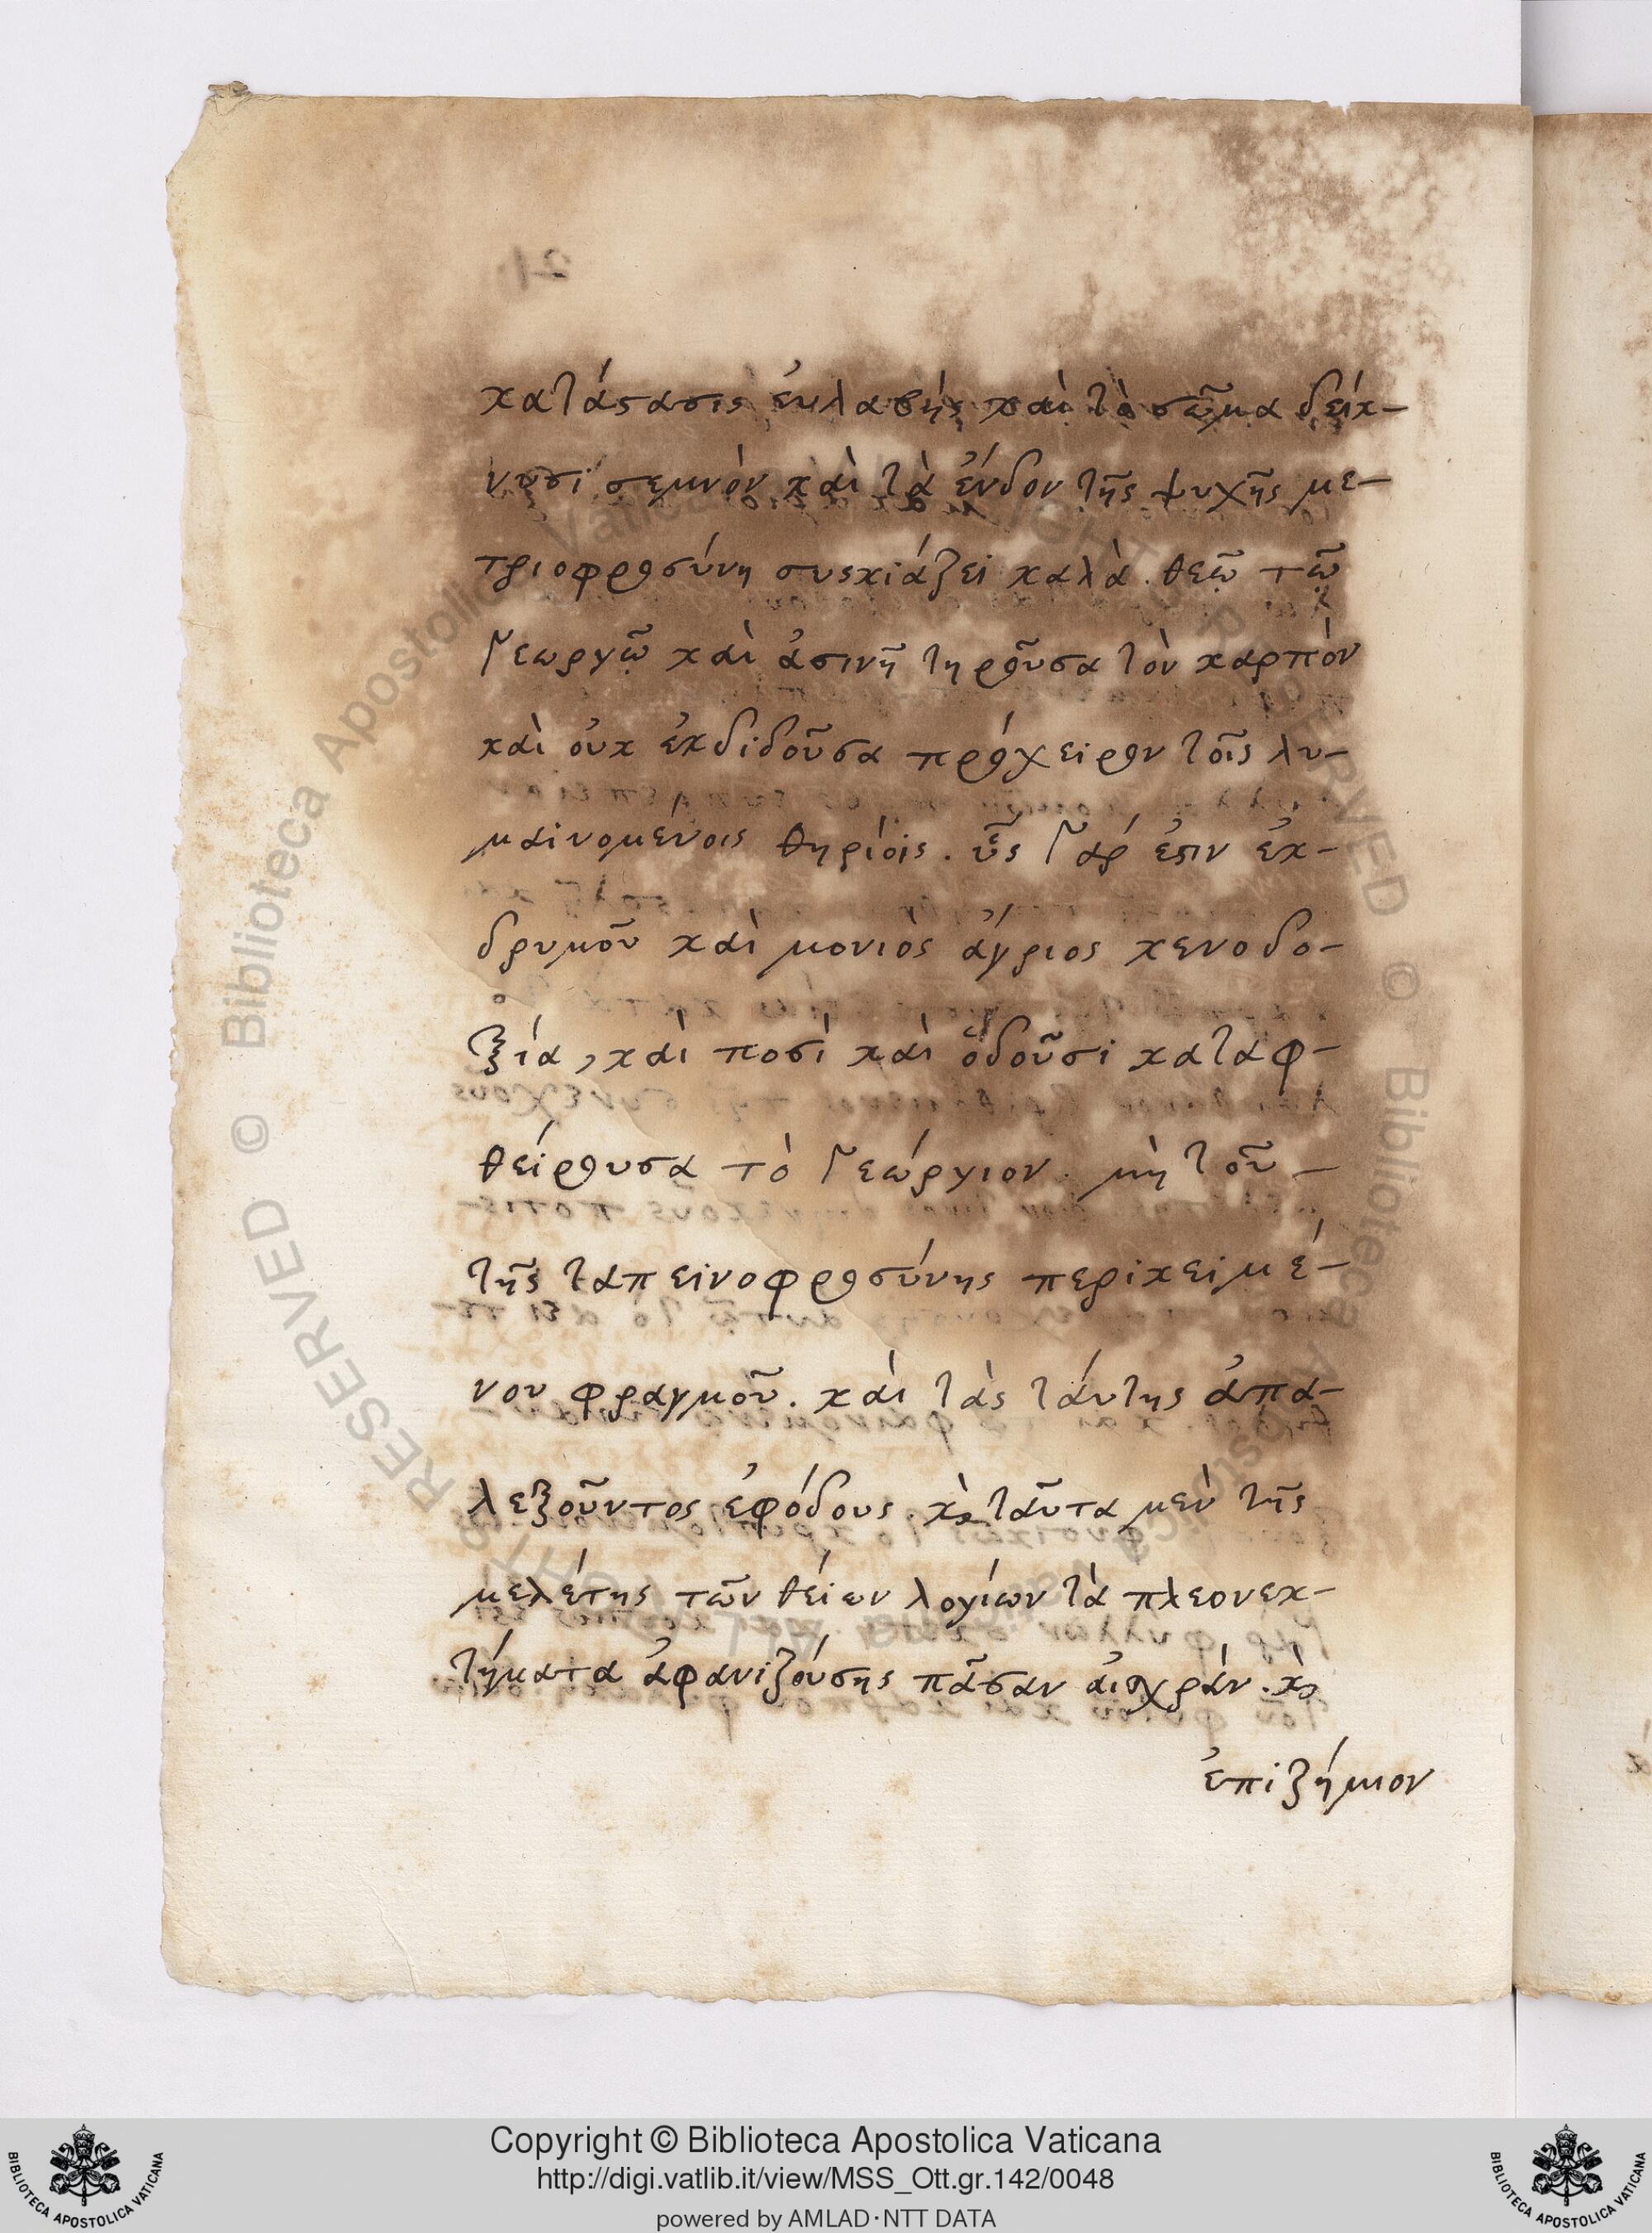 κατάστασις ἐυλαβής καὶ τὸ σῶμα δείκ-
νυσι σεμνὸν καὶ τὰ ἔνδον τῆς ψυχῆς με-
τριοφροσύνη συσκιάζει καλὰ. θεῶ τῶ
Γεωργῶ καὶ ἀσινῆ τηροῦσα τὸν καρπὸν
καὶ οὐκ ἐκδιδοῦσα πρόχειρον τοῖς λυ-
μαινομένοις θηρίοις. ὗς Γάρ ἐστιν ἐκ-
δρυμοῦ καὶ μονιὸς ἄγριος κενοδο-
ξία, καὶ ποσὶ καὶ ὀδοῦσι καταφ-
θείρουσα τὸ Γεώργιον. μὴ τοῦ-
τῆς ταπεινοφροσύνης περικειμέ-
νου φραγμοῦ. καὶ τὰς ταύτης ἀπα-
λεξοῦντος ἐφόδους. κὶ ταῦτα μὲν τῆς
μελέτης τῶν θείων λογίων τὰ πλεονεκ-
τήματα ἀφανιζούσης πᾶσαν ἀισχράν. κὶ
ἐπιζήμιον
Copyright © Biblioteca Apostolica Vaticana
http://digi.vatlib.it/view/MSS_Ott.gr.142/0048
powered by AMLAD·NTT DATA
BIBLIOTECA APOSTOLICA VATICANA
BIBLIOTECA APOSTOLICA VATICANA